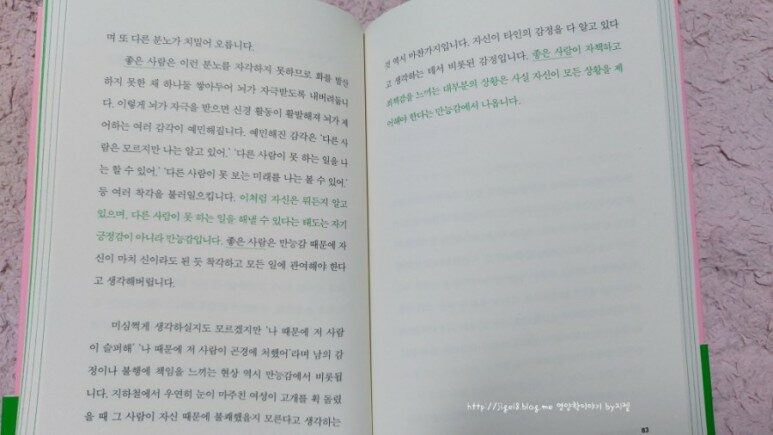 며 또 다른 분노가 치밀어 오릅니다.
좋은 사람은 이런 분노를 자각하지 못하므로 화를 발산
하지 못한 채 하나둘 쌓아두어 뇌가 자극받도록 내버려둡니
다. 이렇게 뇌가 자극을 받으면 신경 활동이 활발해져 뇌가 제
어하는 여러 감각이 예민해집니다. 예민해진 감각은 '다른 사
람은 모르지만 나는 알고 있어.' '다른 사람이 못 하는 일을 나
는 할 수 있어.' '다른 사람이 못 보는 미래를 나는 볼 수 있어.'
등 여러 착각을 불러일으킵니다. 이처럼 자신은 뭐든지 알고
있으며, 다른 사람이 못 하는 일을 해낼 수 있다는 태도는 자기
긍정감이 아니라 만능감입니다. 좋은 사람은 만능감 때문에 자
신이 마치 신이라도 된 듯 착각하고 모든 일에 관여해야 한다
고 생각해버립니다.
미심쩍게 생각하실지도 모르겠지만 '나 때문에 저 사람
이 슬퍼해' '나 때문에 저 사람이 곤경에 처했어'라며 남의 감
정이나 불행에 책임을 느끼는 현상 역시 만능감에서 비롯됩
니다. 지하철에서 우연히 눈이 마주친 여성이 고개를 휙 돌렸
을 때 그 사람이 자신 때문에 불쾌했을지 모른다고 생각하는
것 역시 마찬가지입니다. 자신이 타인의 감정을 다 알고 있다
고 생각하는 데서 비롯된 감정입니다. 좋은 사람이 자책하고
죄책감을 느끼는 대부분의 상황은 사실 자신이 모든 상황을 제
어해야 한다는 만능감에서 나옵니다.
http://jigei8.blog.me 영양학이야기 by지젤
83